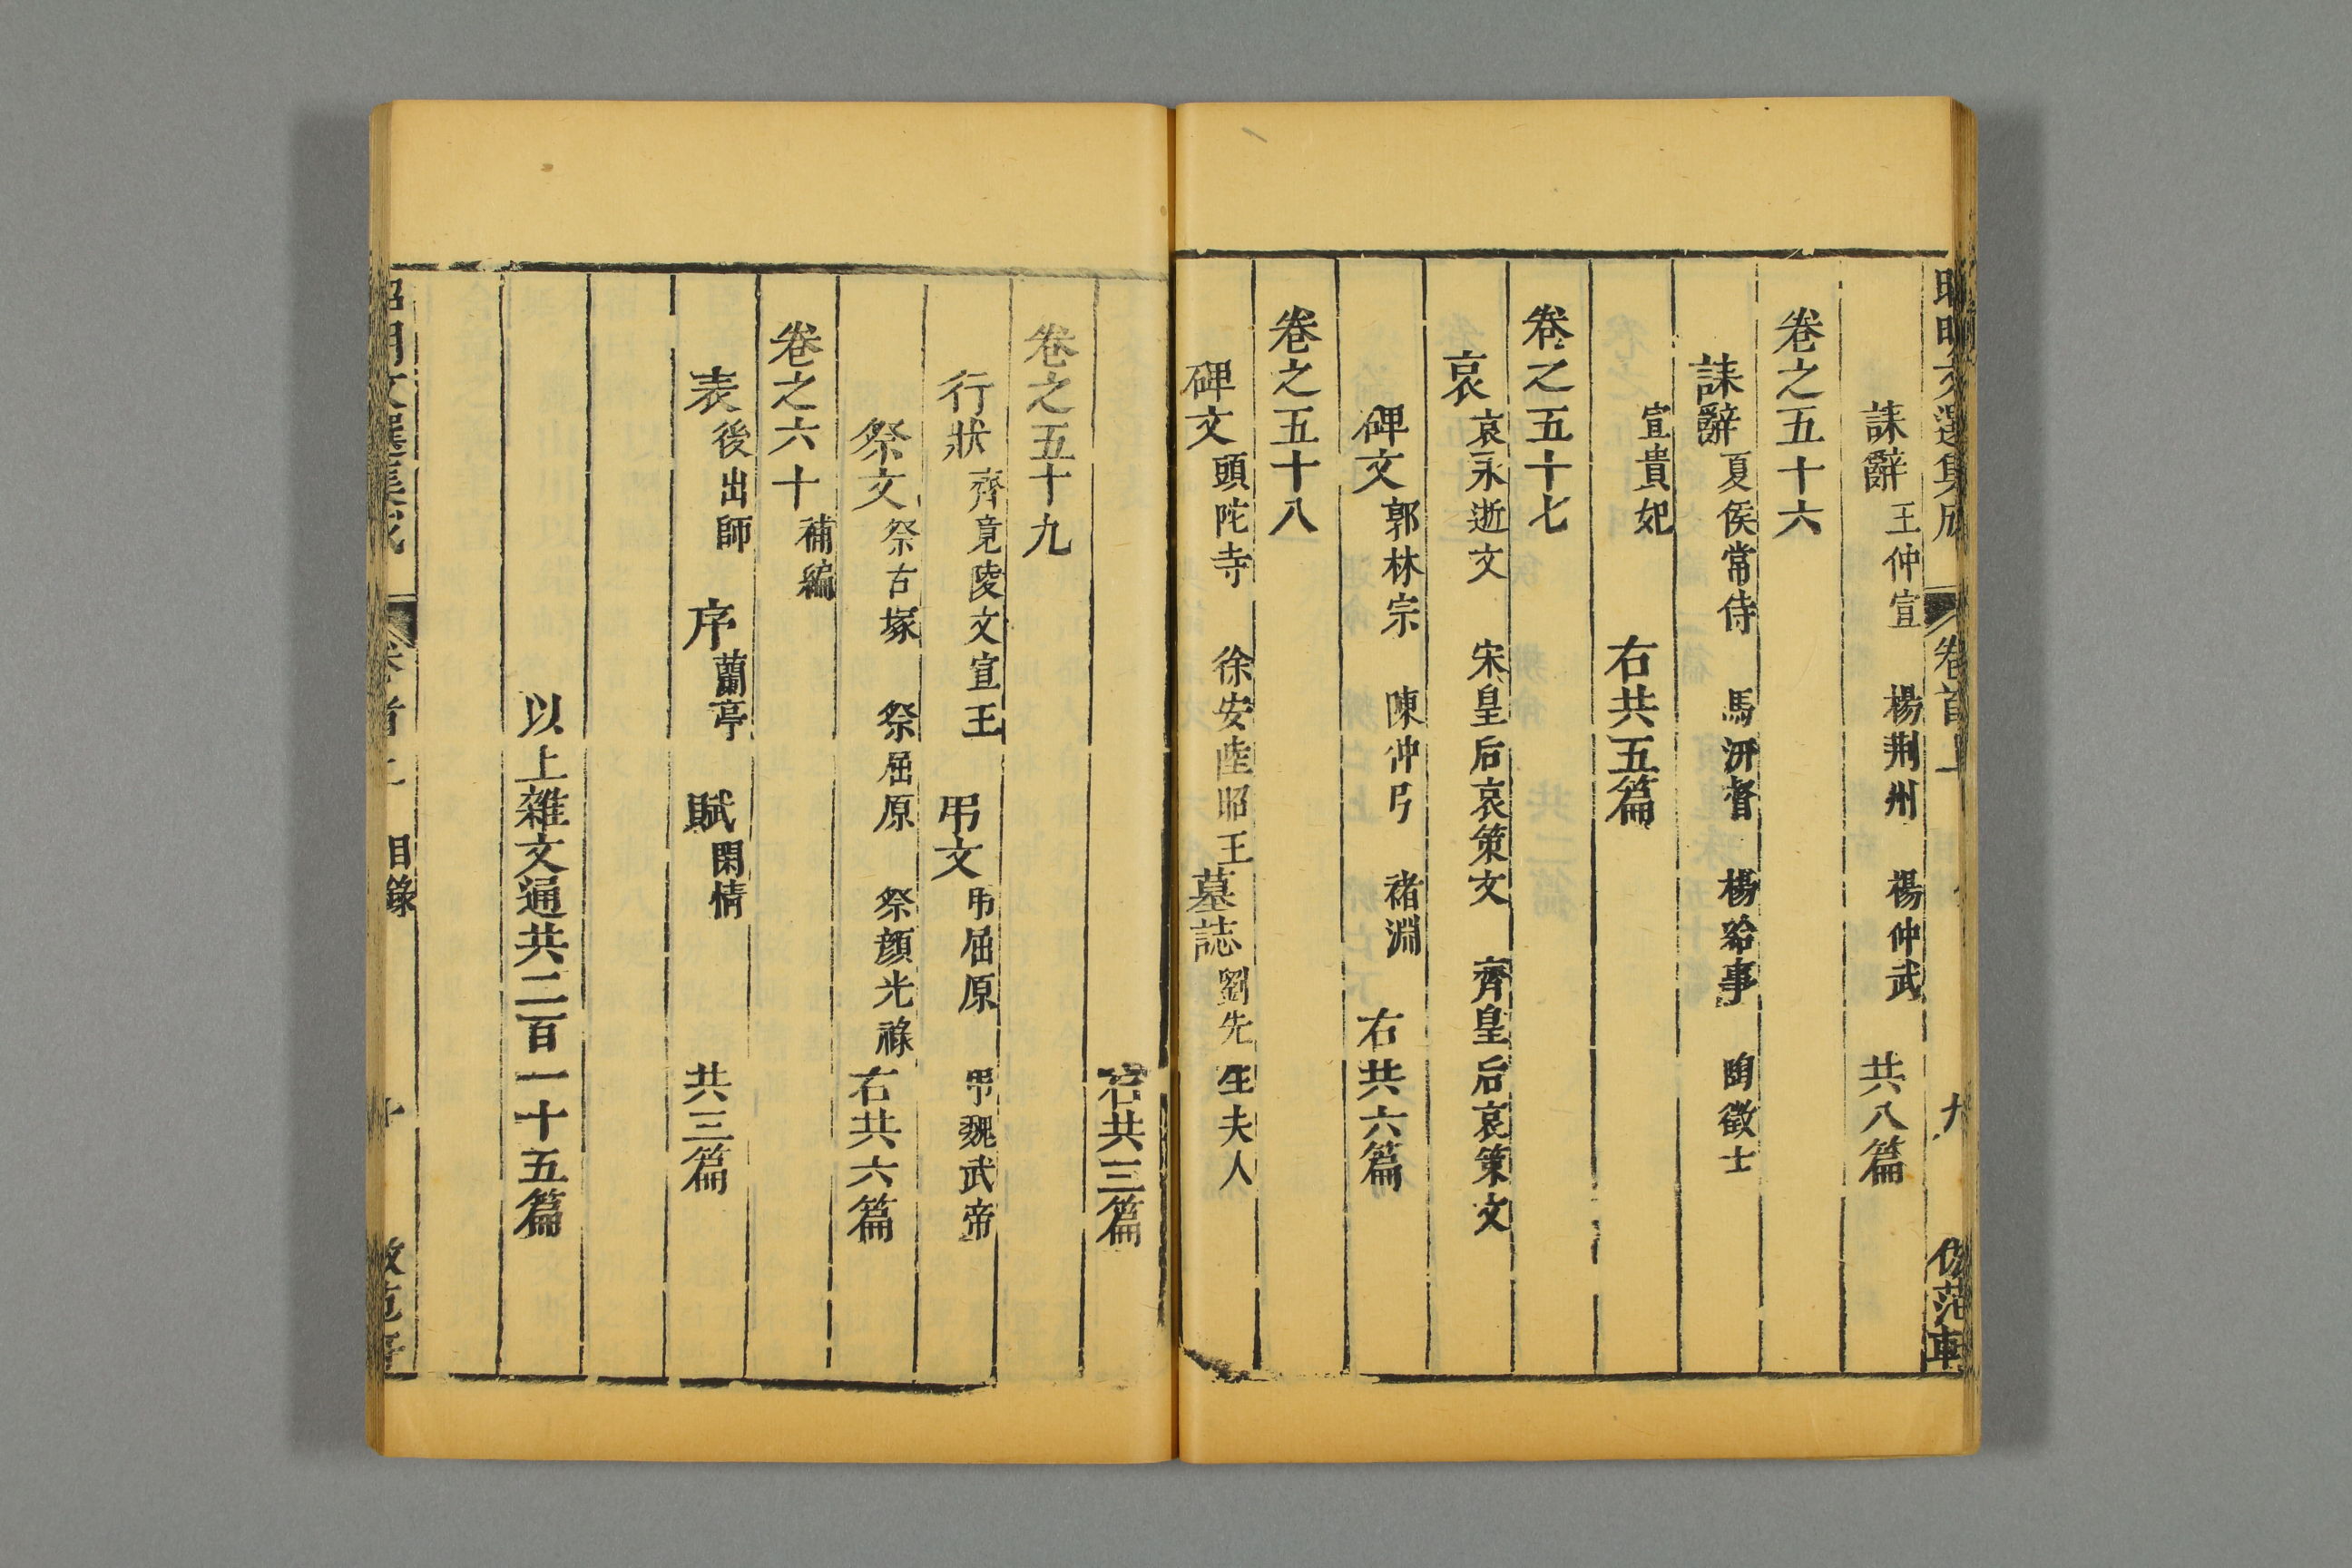 昭明文選集成 卷首上 九 倣范軒
誄辭 王仲宣 楊荆州 楊仲武 共八篇
卷之五十六
誄辭 夏侯常侍 馬汧督 楊給事 陶徵士
宣貴妃 右共五篇
卷之五十七
哀 哀永逝文 宋皇后哀策文 齊皇后哀策文
碑文 郭林宗 陳仲弓 褚淵 右共六篇
卷之五十八
碑文 頭陀寺 徐安陸昭王 墓誌 劉先生夫人
右共三篇
卷之五十九
行狀 齊竟陵文宣王 弔文 弔屈原 弔魏武帝
祭文 祭古塚 祭屈原 祭顏光祿 右共六篇
卷之六十 補編
表 後出師 序 蘭亭 賦 閑情 共三篇
以上雜文通共二百一十五篇
昭明文選集成 卷首上 目錄